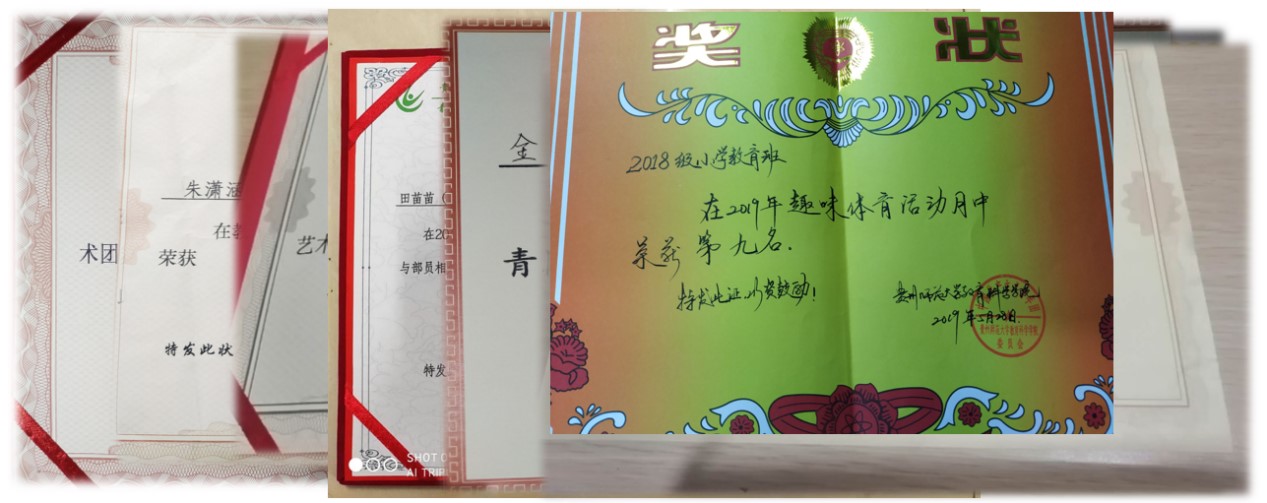 术团
朱潇涵
在
荣获
特发此状
艺术
田苗苗（
在20
与部员相
特发
SHOT O
AI TRIP
金
青
奖状
2018级小学教育班
在2019年趣味体育活动月中
荣获第九名.
特发此证,以资鼓励!
贵州师范大学教育科学学院
2019年5月28日.
贵州师范大学教育科学学院
委员会